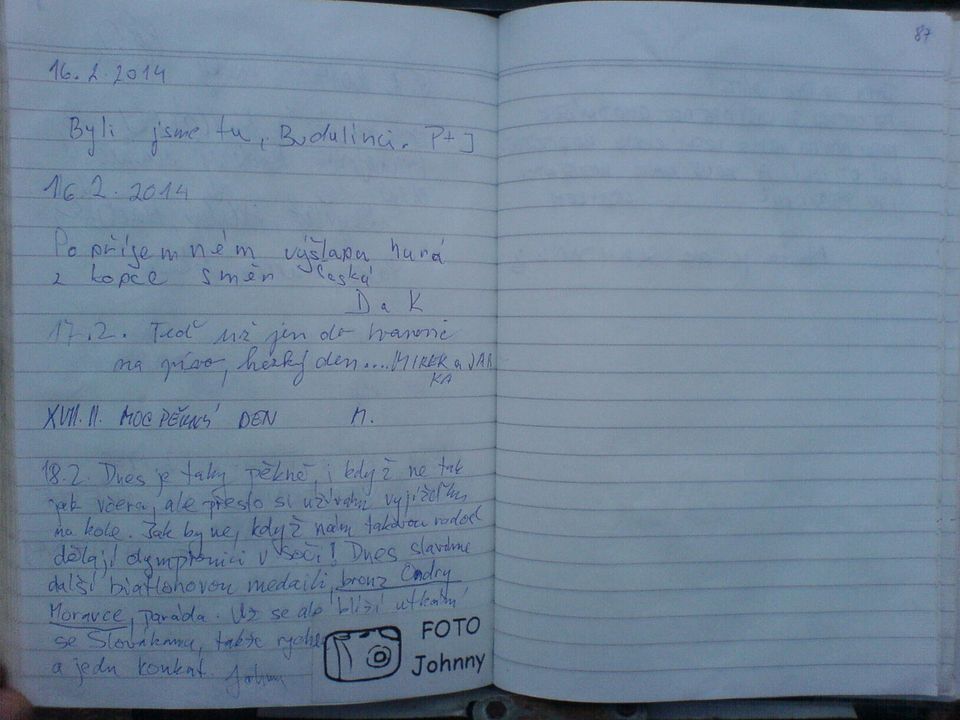 87
16.2.2014
Byli jsme tu, Budulinci. P+J
16.2.2014
Po příjemném výšlapu hurá
z kopce směr Česká
D a K
17.2. Teď už jen do Ivanovic
na pivo, hezký den....MIREK a JAR
KA
XVII.II. MOC PĚKNÝ DEN M.
18.2. Dnes je taky pěkně, i když ne tak
jak včera, ale přesto si užívám vyjížďku
na kole. Jak by ne, když nám takovou radost
dělají olympionici v Soči! Dnes slavíme
další biatlonovou medaili, bronz Ondry
Moravce, paráda. Už se ale blíží utkání
se Slovákama, takže
a jedu koukat. Johnny
FOTO
Johnny